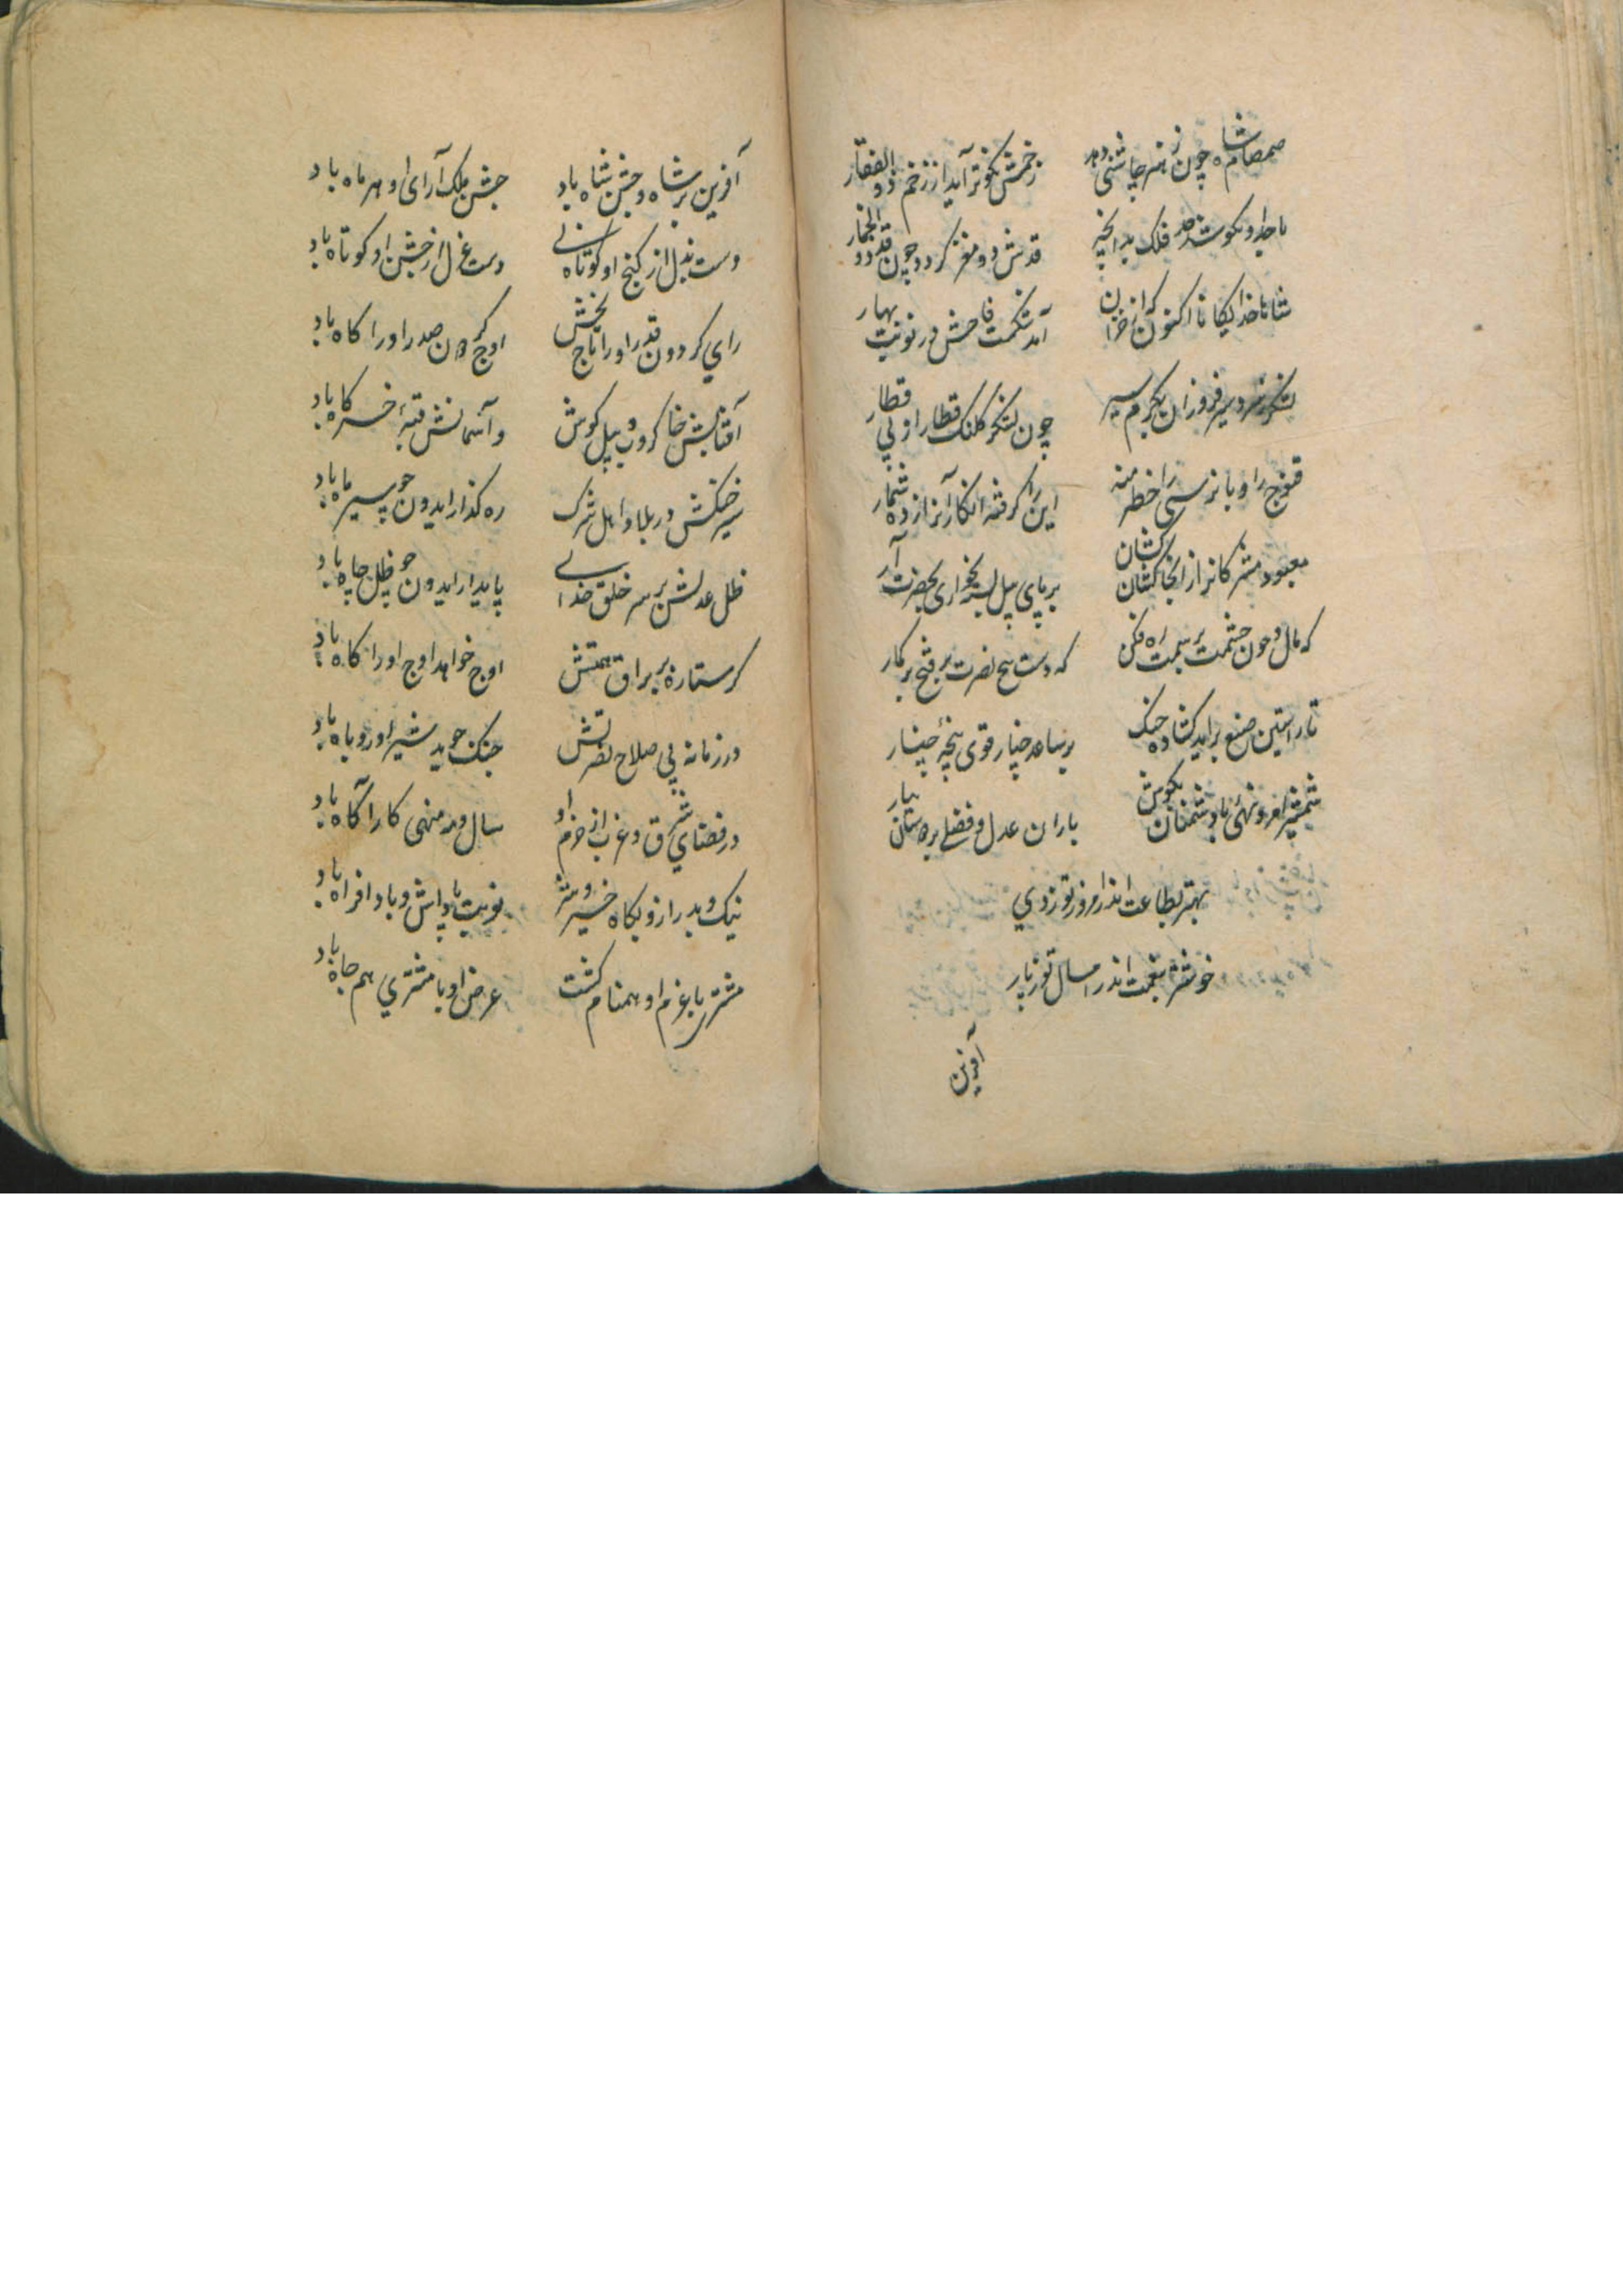 صمصام شاه چون ز هنر چاشنی دهد زخمش نکوتر آید از زخم ذوالفقار
با جد او بکوشد فلک بدانچه قدش دو مغز کردد چون قد دو الخمار
شاها خدایکانا اکنون کز خزان آمد شکست فاحش در نوبت بهار
لشکر فروزان یکرم سپهر چون لشکر کلنک قطار از پی قطار
قنوج را و بانرسی را خطر منه این را کرفته انکار آنرا زده شمار
معبود مشرکانرا ز انجا کشان کشان بر پای پیل بسپر بخواری بحضرت آر
که مال چون حشمت بر سمت راه فکن که دست نصرت بر فتح بر کمار
تا ز آستین صنع براید کشاده چنک بر ساعد چنار قوی پنجه چنار
شمشیر امر و نهی با دشمنان بکوش باران عدل و فضل بر دوستان ببار
بهتر بطاعت اندر امروز تو ز دی
خوشتر بنعمت اندر امسال تو ز پار
آفرین
آفرین بر شاه و جشن شاه باد جشن ملک آرای او هر ماه باد
دست بذل از کنج او کوتاه نی دست عزل از جشن او کوتاه باد
رای کردون قدر او را تاج بخش اوج کردون صدر او را کاه باد
آفتابش خاکروب پیل کوش و آسمانش قبه خرکاه باد
سیر خنکش در بلاد اهل شرک ره کذار ایدون چو سیر ماه باد
ظل عدلش بر سر خلق خدای پایدار ایدون چو ظل چاه باد
کر ستاره بر براق همتش اوج خواهد اوج او را کاه باد
در زمانه بی صلاح نصرتش جنک جوید شیر او روباه باد
در فضای شرق و غرب از حزم او سال و مه منهی کار آکاه باد
نیک و بد را زو بکاه خیر و شر نوبت پاداش و بادافراه باد
مشتری با عزم او همنام کشت عرض او با مشتری هم جاه باد